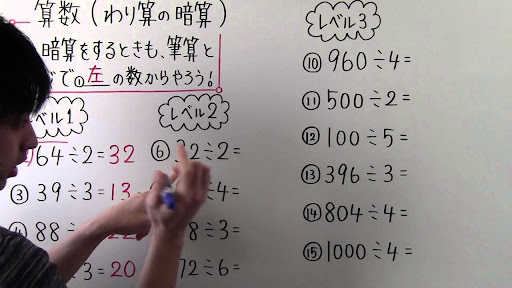 算数(わり算の暗算)
暗算をするときも、筆算と
で①左の数からやろう!
レベル1
64÷2=32
③39÷3=13
88
÷3=20
レベル2
⑥32÷2=
÷4=
8÷3=
72÷6=
レベル3
⑩960÷4=
⑪500÷2=
⑫100÷5=
⑬396÷3=
⑭804÷4=
⑮1000÷4=